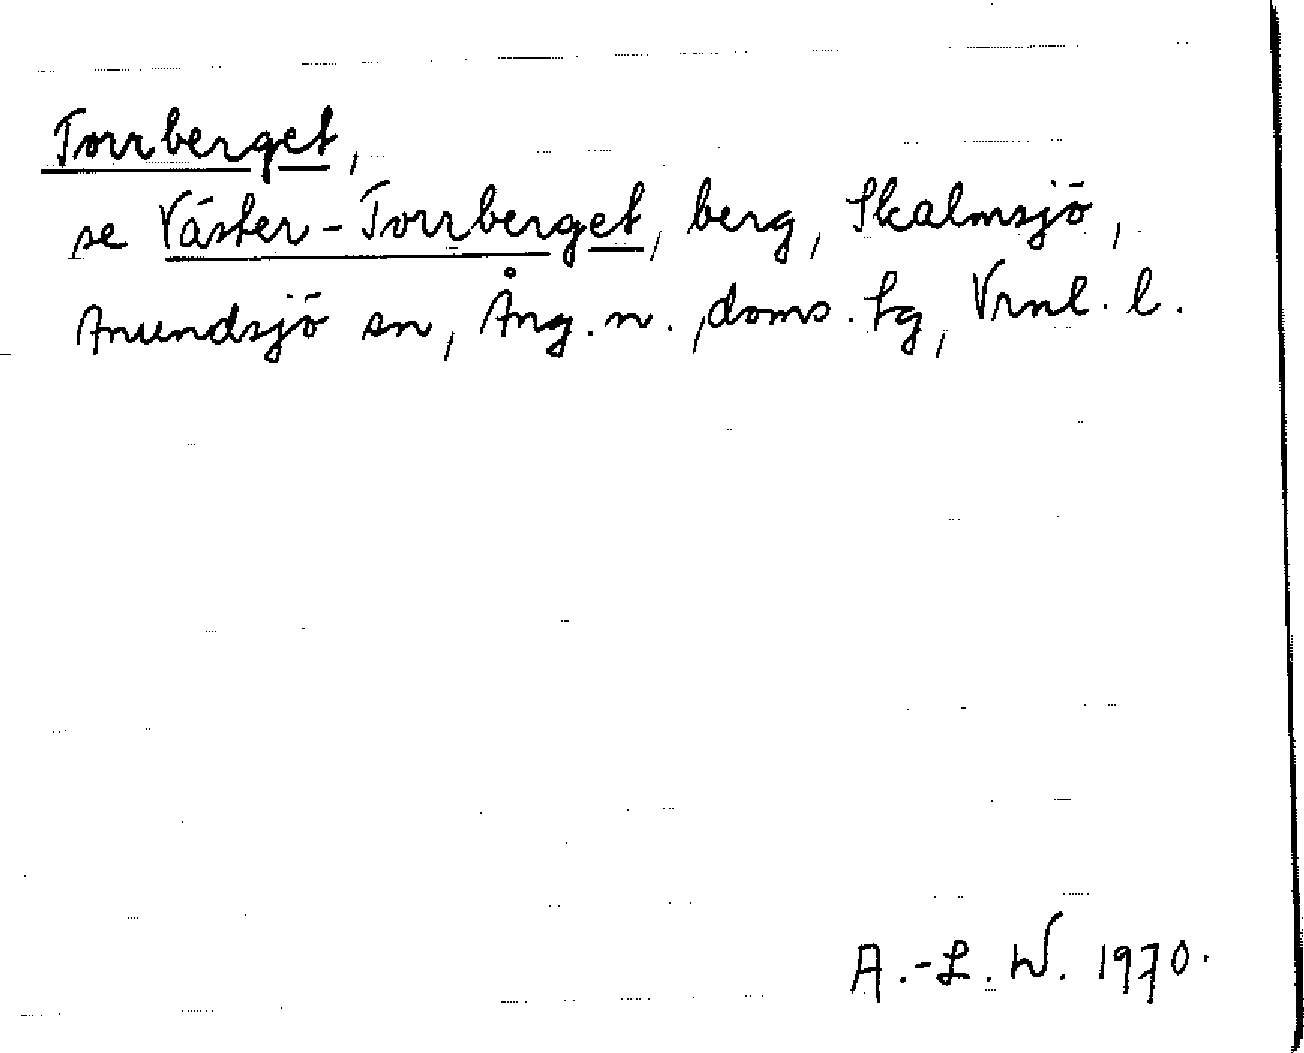 Torrberget,
se Väster-Torrberget, berg, Skalmsjö,
Anundsjö sn, Ång. n., doms. tg, Vrnl. l.
A.-L. W. 1970.